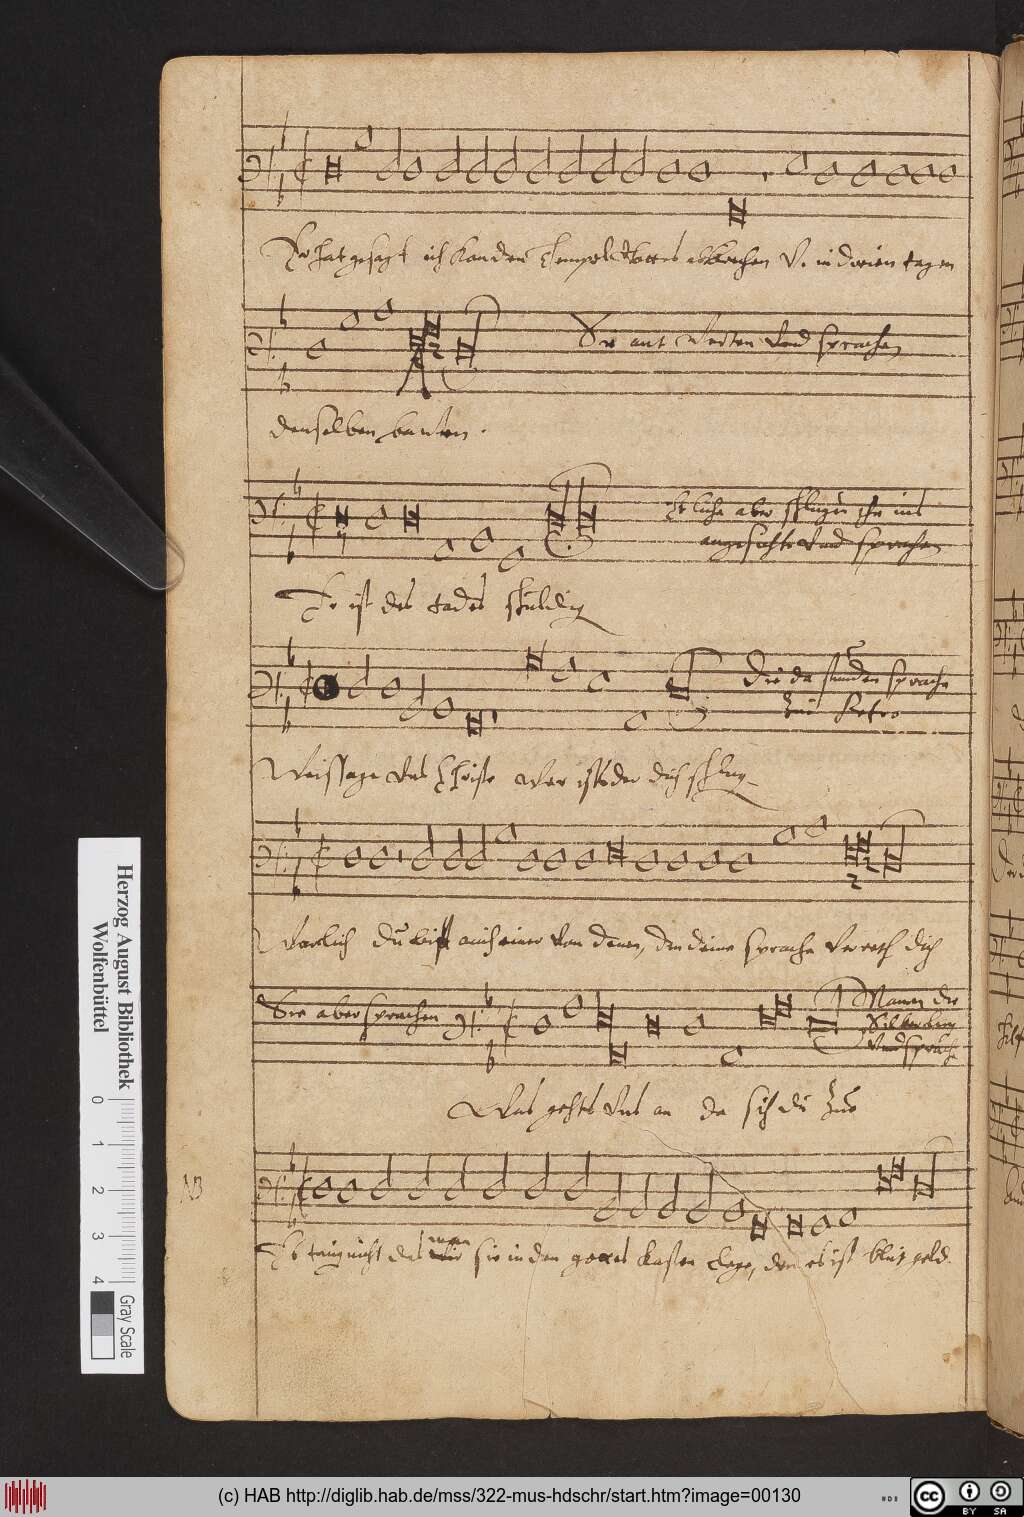 Er hat gesagt ich kan den Tempel Gottes abbrechen V. in dreien tagen
Sie antworten Vnd sprachen
denselben bauwen.
Etliche aber schlugen ihn ins
angesichte Vnd sprachen
Er ist des todes schuldig
Die da stunden sprachen
zu Petro
Weissage Vns Christe wer ists der dich schlug
Warlich du bist auch einer Von denen, den deine sprache Verreth dich
Sie aber sprachen
Namen die
Silberling
Vnd sprache
Was gehts Vns an da sich du zuo
NB
Es taug nicht das man sie in den gottes kasten lege, den es ist blut geld.
Herzog August Bibliothek
Wolfenbüttel
0 1 2 3 4
Gray Scale
(c) HAB http://diglib.hab.de/mss/322-mus-hdschr/start.htm?image=00130
HAB
cc
BY SA